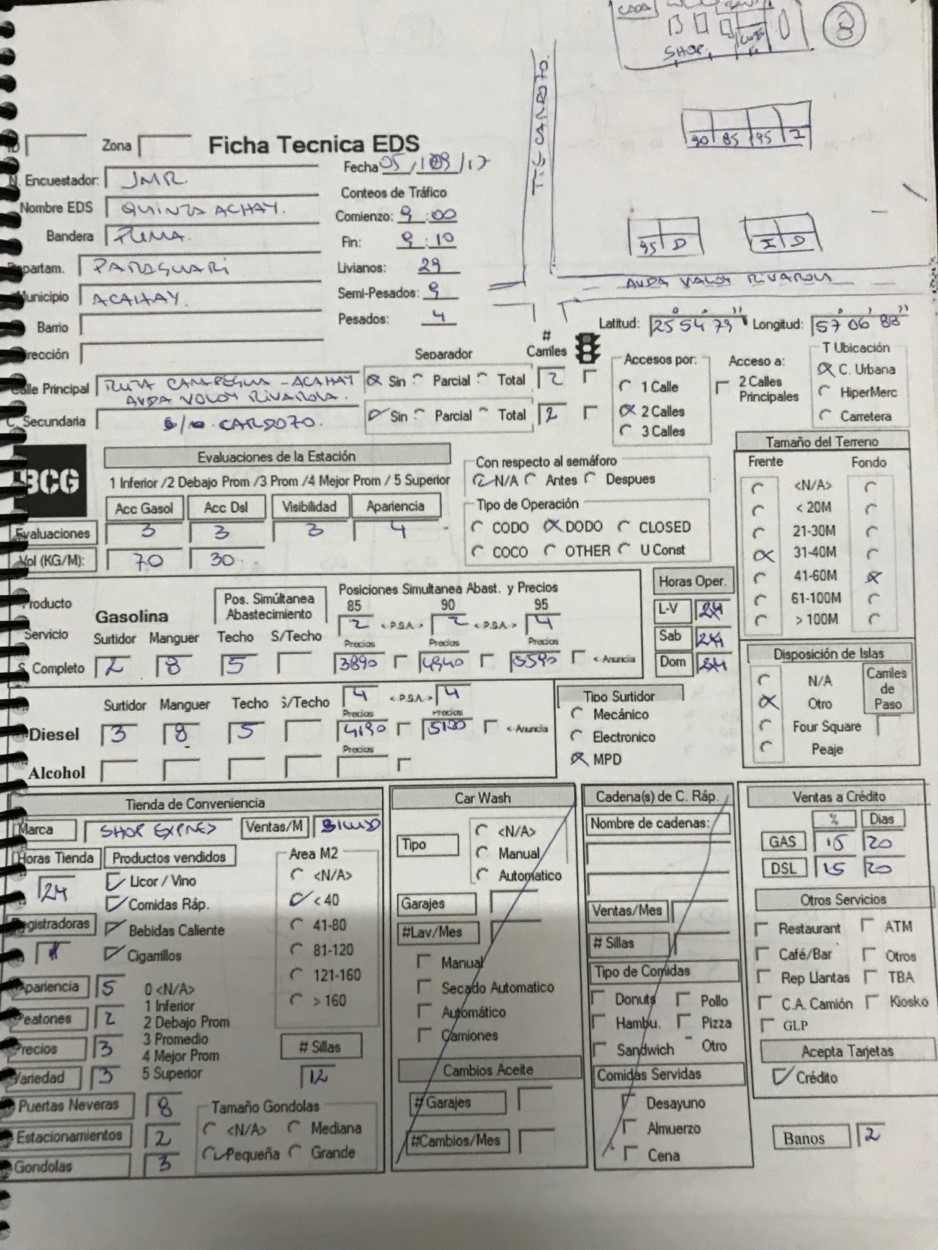 CADA
SHOP.
8
TTE CARDOZO.
90 85 95 I
95 D
I D
AVDA VALOY RIVAROLA
ID
Zona
Ficha Tecnica EDS
Fecha 05 / 09 / 17
N. Encuestador: JMR.
Nombre EDS QUINTA ACHAY.
Bandera PUMA.
Departam. PARAGUARI
Municipio ACAHAY.
Barrio
Dirección
Conteos de Tráfico
Comienzo: 9:00
Fin: 9:10
Livianos: 29
Semi-Pesados: 9
Pesados: 4
Latitud: 25 54 79 '' Longitud: 57 06 88
Calle Principal RUTA CARAPEGUA - ACAHAY
AVDA VALOY RIVAROLA.
C. Secundaria CARDOZO.
Separador
# Carriles
Sin Parcial Total 2
Sin Parcial Total 2
Accesos por:
1 Calle
2 Calles
3 Calles
Acceso a:
2 Calles Principales
T Ubicación
C. Urbana
HiperMerc
Carretera
BCG
Evaluaciones de la Estación
1 Inferior /2 Debajo Prom /3 Prom /4 Mejor Prom / 5 Superior
Acc Gasol Acc Dsl Visibilidad Apariencia
Evaluaciones 3 3 3 4
Vol (KG/M): 70 30
Con respecto al semáforo
N/A Antes Despues
Tipo de Operación
CODO DODO CLOSED
COCO OTHER U Const
Tamaño del Terreno
Frente Fondo
<N/A>
< 20M
21-30M
31-40M
41-60M
61-100M
> 100M
Producto
Gasolina
Pos. Simúltanea Abastecimiento
Posiciones Simultanea Abast. y Precios
85 90 95
2 < P.S.A. > 2 < P.S.A. > 4
Servicio Surtidor Manguer Techo S/Techo Precios Precios Precios
S. Completo 2 8 5 3890 4840 5590 <-Anuncia
Horas Oper.
L-V 24
Sab 24
Dom 24
Surtidor Manguer Techo S/Techo 4 < P.S.A. > 4
Precios Precios
Diesel 3 8 5 4190 5190 <-Anuncia
Precios
Alcohol
Tipo Surtidor
Mecánico
Electronico
MPD
Disposición de Islas
N/A
Otro
Four Square
Peaje
Carriles de Paso
Tienda de Conveniencia
Marca SHOP EXPRES Ventas/M
Horas Tienda Productos vendidos
24
Licor / Vino
Comidas Ráp.
Bebidas Caliente
Cigarrillos
Registradoras
Area M2
<N/A>
< 40
41-80
81-120
121-160
> 160
Apariencia 5
Peatones 2
Precios 3
Variedad 3
0 <N/A>
1 Inferior
2 Debajo Prom
3 Promedio
4 Mejor Prom
5 Superior
# Sillas
12
Puertas Neveras 8
Estacionamientos 2
Gondolas 3
Tamaño Gondolas
<N/A> Mediana
Pequeña Grande
Car Wash
Tipo
<N/A>
Manual
Automatico
Garajes
#Lav/Mes
Manual
Secado Automatico
Automático
Camiones
Cambios Aceite
# Garajes
#Cambios/Mes
Cadena(s) de C. Ráp.
Nombre de cadenas:
Ventas/Mes
# Sillas
Tipo de Comidas
Donuts Pollo
Hambu. Pizza
Sandwich Otro
Comidas Servidas
Desayuno
Almuerzo
Cena
Ventas a Crédito
% Dias
GAS 15 20
DSL 15 20
Otros Servicios
Restaurant ATM
Café/Bar Otros
Rep Llantas TBA
C.A. Camión Kiosko
GLP
Acepta Tarjetas
Crédito
Banos 2